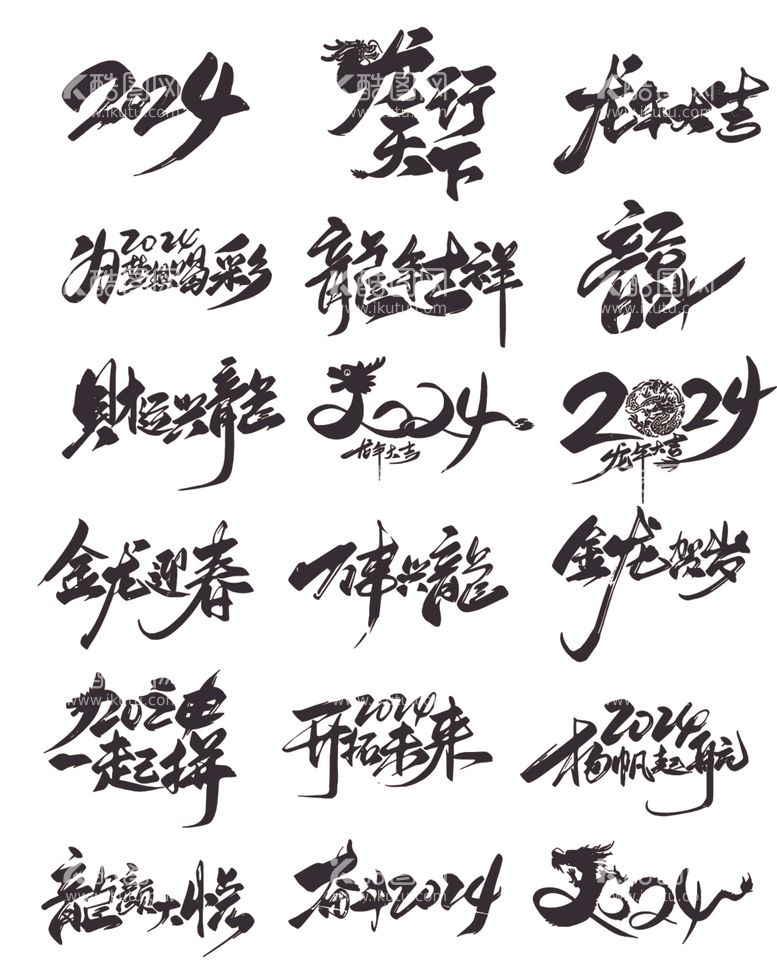 2024
龙行
天下
龙年大吉
为2024梦想喝彩
龍年吉祥
龍
财运兴龍
2024
龙年大吉
2024
龙年大吉
金龙迎春
万事兴龍
金龙贺岁
2024
一起拼
2024
开拓未来
2024
扬帆起航
龍颜大悦
奋斗2024
2024
酷图网
www.ikutu.com